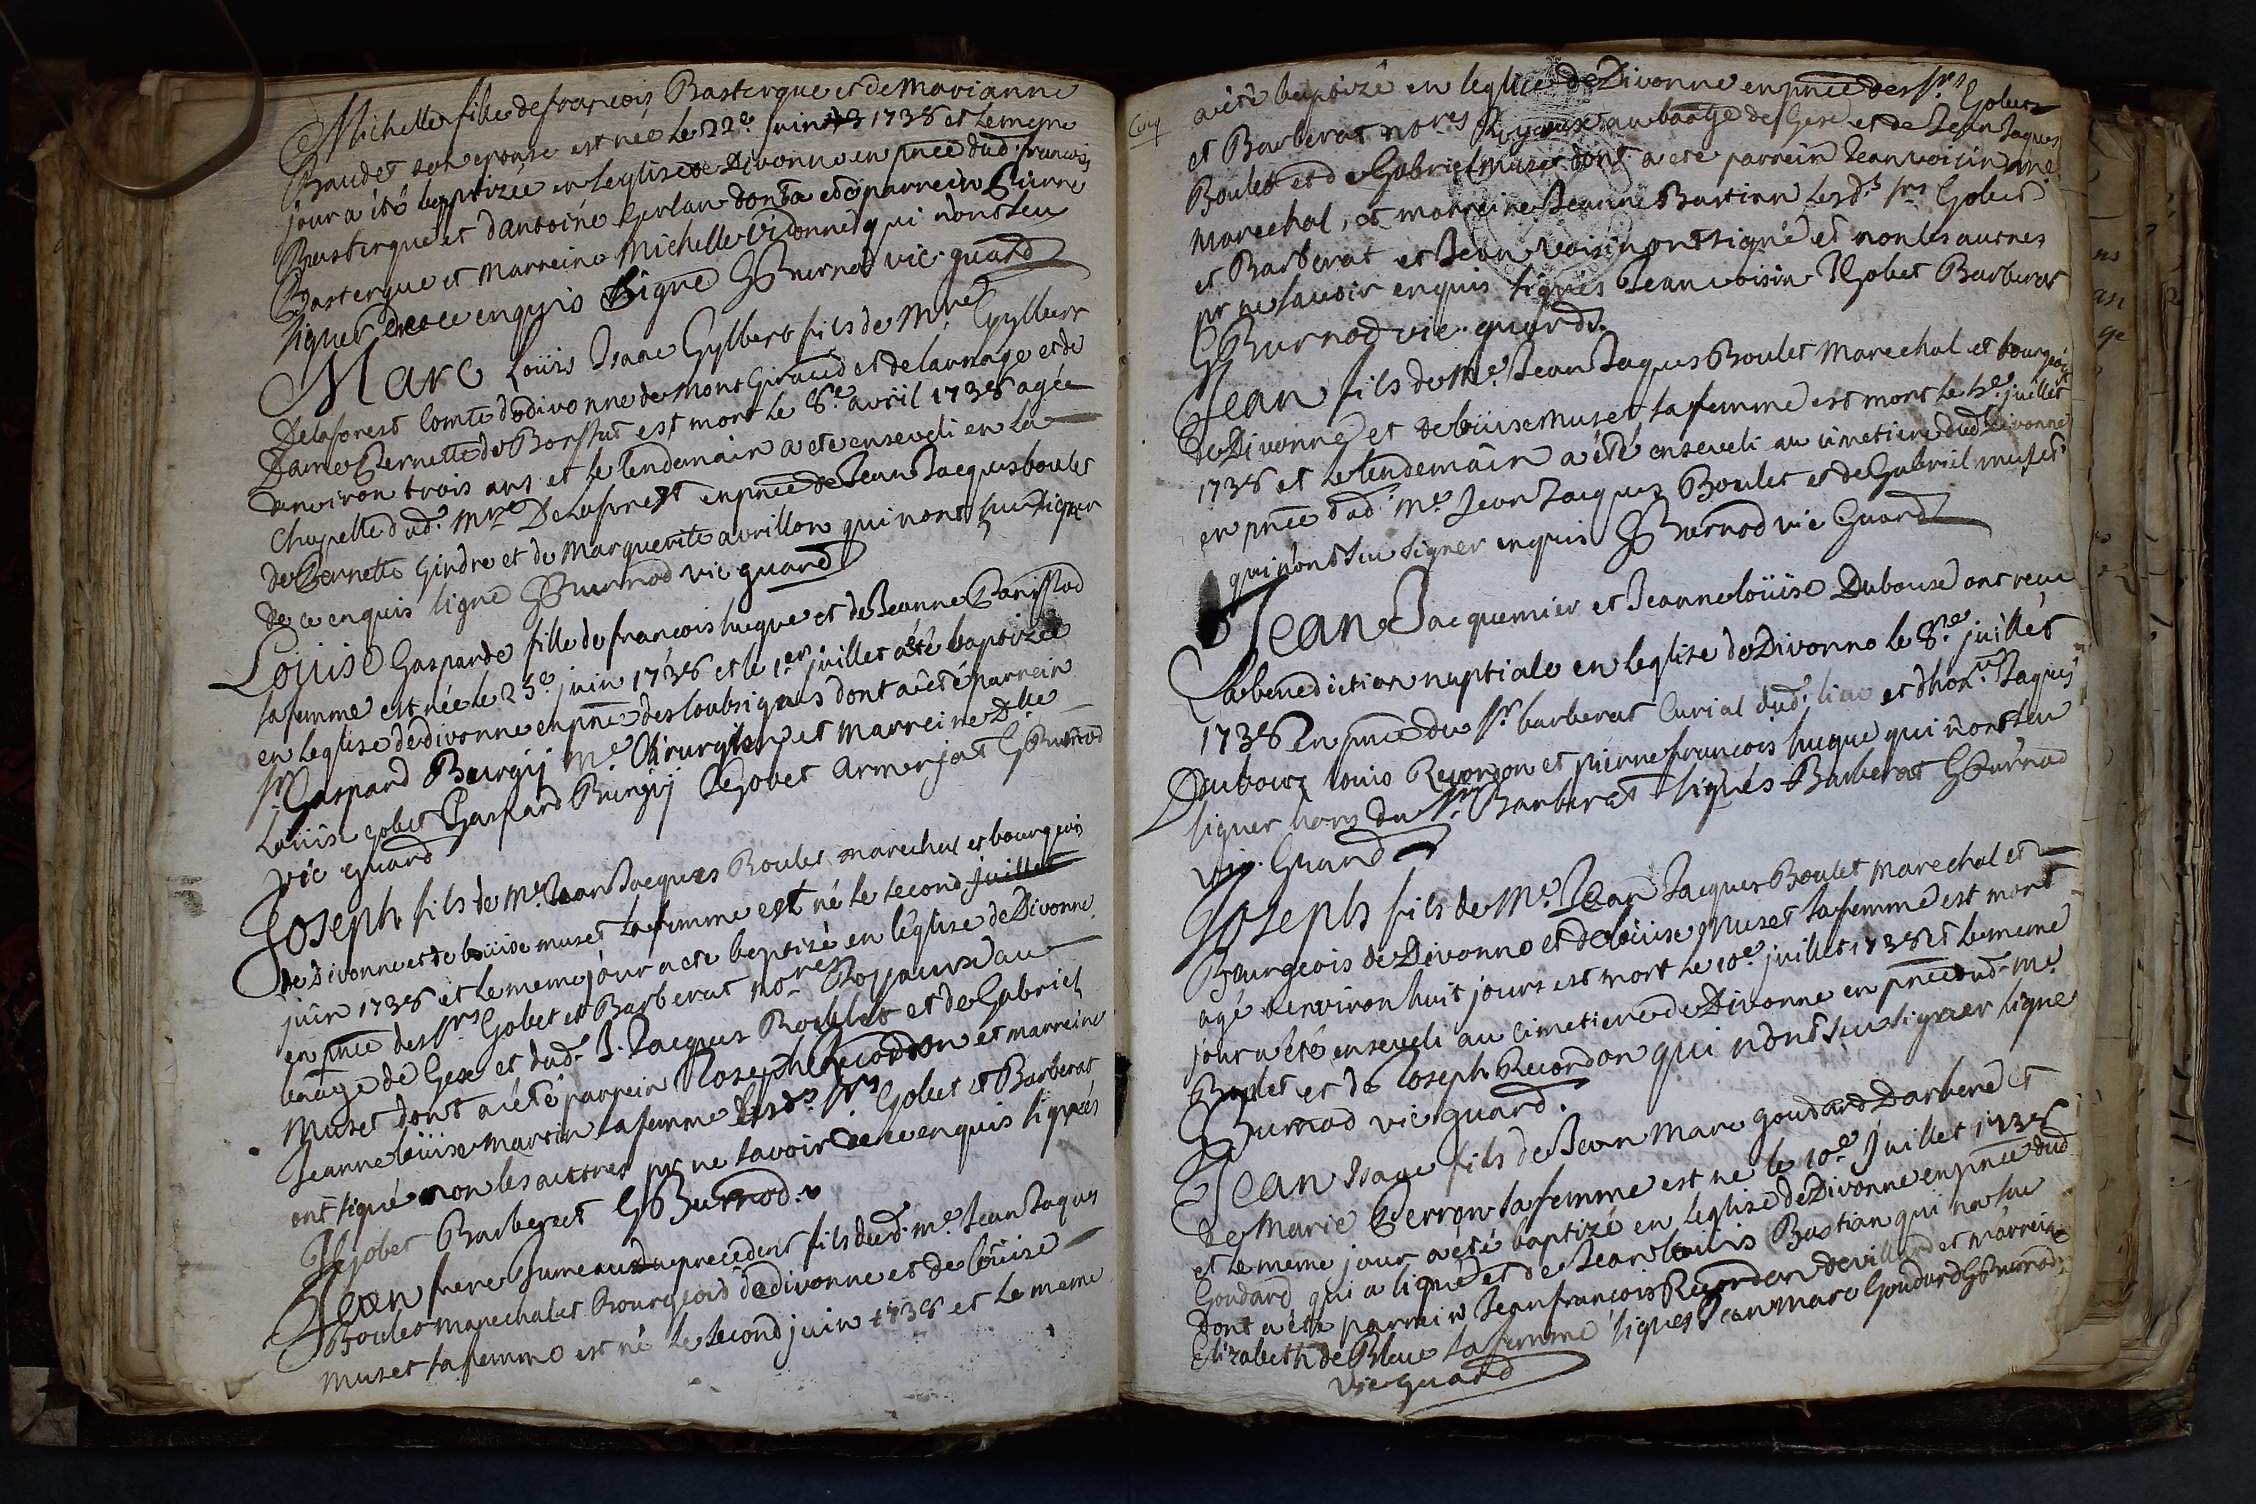 Michelle fille de francois Bastergue et de Marianne
Baudet son epouse est née le 22e juin 1736 et le meme
jour a été baptizée en leglise de Divonne en pnce dud. francois
Bastergue et dantoine Gerlan dont a eté parrein Pierre
Bastergue et Marreine Michelle Vidonne qui nont seu
signer de ce enquis Signé GBurnod vic. guard
Marc Loüis Isaac Gylbert fils de Mre Gylbert
Delaforest Comte de divonne de Mont Giraud et de larnage et de
Dame Pernette de Borssat est mort le 8e avril 1736 agée
denviron trois ans et le lendemain a ete enseveli en la
Chapelle dud. Mre Delaforest en pnce de Jean Jacques boulet
de Pernette Gindre et de Marguerite avrillon qui nont seu signer
de ce enquis signé GBurnod vic guard
Loüise Gasparde fille de francois huque et de Jeanne Panissod
sa femme est née le 25e juin 1736 et le 1er juillet a été baptizée
en leglise de divonne en pnce des soubsignes dont a été parrein
Sr Gaspard Burgij Me Chirurgien et Marreine Dlle
Loüise gobet Gaspard Burgij JGobet Armerjat GBurnod
vic guard
Joseph fils de Me Jean Jacques Boulet marechal et bourgeois
de Divonne et de loüise muset sa femme est né le second juillet
juin 1736 et le meme jour a ete baptizé en léglise de Divonne
en pnce des Srs Gobet et Barberat nores Royaux au
baage de Gex et dud. J. Jacques Boullet et de Gabriel
Muset dont a été parrein Joseph Recordon et marreine
Jeanne loüise Martin sa femme lesds Srs Gobet et Barberat
ont signé non les autres pr ne savoir de ce enquis signés
JGobet Barberat GBurnod.
Jean frere Jumeau du precedent fils dud. me Jean Jaques
Boulet marechal et Bourgeois de divonne et de loüise
Muset sa femme est né le second juin 1736 et le meme
a été baptizé en leglise de Divonne en pnce des Srs Gobet
et Barberat nores Royaux au baage de Gex et de Jean Jaques
Boulet et de Gabriel Muset dont a eté parrein Jean voisin me
Marechal, et marreine Jeanne Bastian lesds Srs Gobet
et Barberat et Jean Voisin ont signé et non les autres
pr ne savoir enquis signés Jean voisin JGobet Barberat
GBurnod vic. guard.
Jean fils de Me Jean Jaques Boulet Marechal et bourgeois
de Divonne et de loüise Muset sa femme est mort le 5e juillet
1736 et le lendemain a été enseveli au cimetiere dud Divonne
en pnce dud. Me Jean Jacques Boulet et de Gabriel muset
qui nont seu signer enquis GBurnod vic Guard
Jean Jacquemier et Jeanne loüise Dubouse ont receu
La benediction nuptiale en leglise de Divonne le 8e juillet
1736 En pnce du Sr barberat Curial dud. lieu et dhon. Jaques
Dubouz louis Recordon et pierre francois huque qui nont seu
signer hors du Sr Barberat signés Barberat GBurnod
vic. Guard
Joseph fils de Me Jean Jacques Boulet Marechal et
Bourgeois de Divonne et de loüise Muset sa femme est mort
agé denviron huit jours est mort le 10e juillet 1736 et le meme
jour a été enseveli au cimetiere de Divonne en pnce dud. Me
Boulet et de Joseph Recordon qui nont seu signer signé
GBurnod vic guard.
Jean Isaac fils de Jean Marc goudard Darbere et
de Marie Perron sa femme est né le 10e Juillet 1736
et le meme jour a été baptizé en leglise de Divonne en pnce dud
Goudard qui a signé et de Jean louis Bastian qui na seu
dont a été parrein Jean francois Recordon de villard et marreine
Elizabeth de Bleue sa femme signes Jean Marc Goudard GBurnod
vic guard